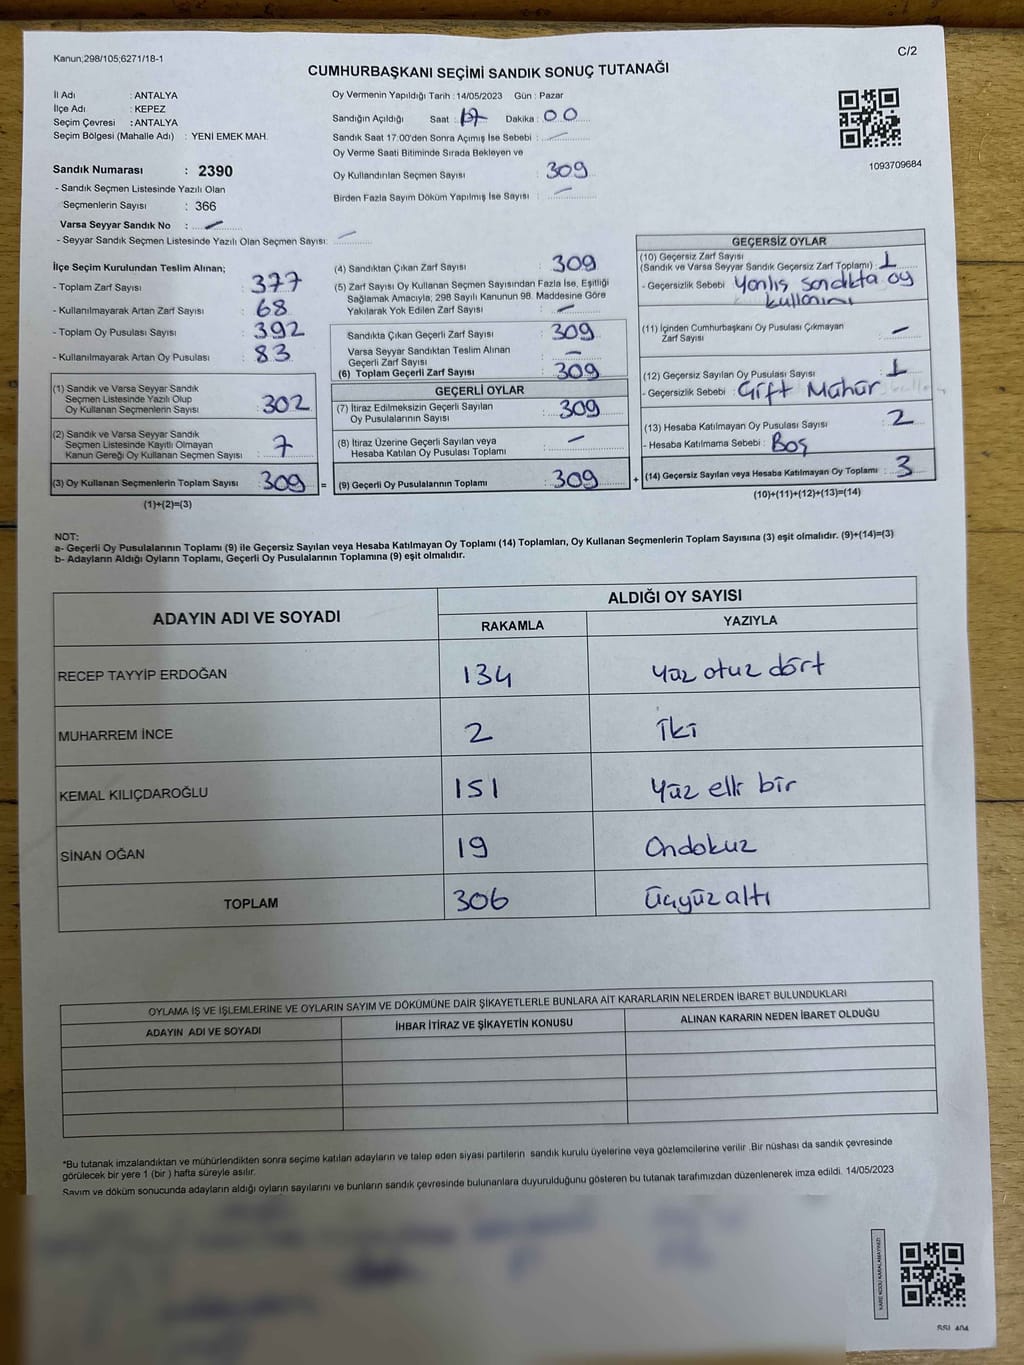 Kanun;298/105;6271/18-1
C/2
CUMHURBAŞKANI SEÇİMİ SANDIK SONUÇ TUTANAĞI
İl Adı : ANTALYA
İlçe Adı : KEPEZ
Seçim Çevresi : ANTALYA
Seçim Bölgesi (Mahalle Adı) : YENİ EMEK MAH.
Sandık Numarası : 2390
- Sandık Seçmen Listesinde Yazılı Olan
Seçmenlerin Sayısı : 366
Varsa Seyyar Sandık No : —
- Seyyar Sandık Seçmen Listesinde Yazılı Olan Seçmen Sayısı: —
Oy Vermenin Yapıldığı Tarih : 14/05/2023 Gün : Pazar
Sandığın Açıldığı Saat : 17 Dakika : 00
Sandık Saat 17.00'den Sonra Açımış İse Sebebi : —
Oy Verme Saati Bitiminde Sırada Bekleyen ve
Oy Kullandırılan Seçmen Sayısı : 309
Birden Fazla Sayım Döküm Yapılmış İse Sayısı : —
1093709684
İlçe Seçim Kurulundan Teslim Alınan;
- Toplam Zarf Sayısı : 377
- Kullanılmayarak Artan Zarf Sayısı : 68
- Toplam Oy Pusulası Sayısı : 392
- Kullanılmayarak Artan Oy Pusulası : 83
(1) Sandık ve Varsa Seyyar Sandık
Seçmen Listesinde Yazılı Olup
Oy Kullanan Seçmenlerin Sayısı : 302
(2) Sandık ve Varsa Seyyar Sandık
Seçmen Listesinde Kayıtlı Olmayan
Kanun Gereği Oy Kullanan Seçmen Sayısı : 7
(3) Oy Kullanan Seçmenlerin Toplam Sayısı : 309 =
(1)+(2)=(3)
(4) Sandıktan Çıkan Zarf Sayısı : 309
(5) Zarf Sayısı Oy Kullanan Seçmen Sayısından Fazla İse, Eşitliği
Sağlamak Amacıyla; 298 Sayılı Kanunun 98. Maddesine Göre
Yakılarak Yok Edilen Zarf Sayısı : —
Sandıkta Çıkan Geçerli Zarf Sayısı : 309
Varsa Seyyar Sandıktan Teslim Alınan
Geçerli Zarf Sayısı : —
(6) Toplam Geçerli Zarf Sayısı : 309
GEÇERLİ OYLAR
(7) İtiraz Edilmeksizin Geçerli Sayılan
Oy Pusulalarının Sayısı : 309
(8) İtiraz Üzerine Geçerli Sayılan veya
Hesaba Katılan Oy Pusulası Toplamı : —
(9) Geçerli Oy Pusulalarının Toplamı : 309 +
GEÇERSİZ OYLAR
(10) Geçersiz Zarf Sayısı
(Sandık ve Varsa Seyyar Sandık Geçersiz Zarf Toplamı) : 1
- Geçersizlik Sebebi : Yanlış sandıkta oy
kullanımı
(11) İçinden Cumhurbaşkanı Oy Pusulası Çıkmayan
Zarf Sayısı : —
(12) Geçersiz Sayılan Oy Pusulası Sayısı : 1
- Geçersizlik Sebebi : Çift Mühür
(13) Hesaba Katılmayan Oy Pusulası Sayısı : 2
- Hesaba Katılmama Sebebi : Boş
(14) Geçersiz Sayılan veya Hesaba Katılmayan Oy Toplamı : 3
(10)+(11)+(12)+(13)=(14)
NOT:
a- Geçerli Oy Pusulalarının Toplamı (9) ile Geçersiz Sayılan veya Hesaba Katılmayan Oy Toplamı (14) Toplamları, Oy Kullanan Seçmenlerin Toplam Sayısına (3) eşit olmalıdır. (9)+(14)=(3)
b- Adayların Aldığı Oyların Toplamı, Geçerli Oy Pusulalarının Toplamına (9) eşit olmalıdır.
ADAYIN ADI VE SOYADI
ALDIĞI OY SAYISI
RAKAMLA YAZIYLA
RECEP TAYYİP ERDOĞAN 134 Yüz otuz dört
MUHARREM İNCE 2 İki
KEMAL KILIÇDAROĞLU 151 Yüz elli bir
SİNAN OĞAN 19 Ondokuz
TOPLAM 306 Üçyüz altı
OYLAMA İŞ VE İŞLEMLERİNE VE OYLARIN SAYIM VE DÖKÜMÜNE DAİR ŞİKAYETLERLE BUNLARA AİT KARARLARIN NELERDEN İBARET BULUNDUKLARI
ADAYIN ADI VE SOYADI İHBAR İTİRAZ VE ŞİKAYETİN KONUSU ALINAN KARARIN NEDEN İBARET OLDUĞU
*Bu tutanak imzalandıktan ve mühürlendikten sonra seçime katılan adayların ve talep eden siyasi partilerin sandık kurulu üyelerine veya gözlemcilerine verilir .Bir nüshası da sandık çevresinde
görülecek bir yere 1 (bir ) hafta süreyle asılır.
Sayım ve döküm sonucunda adayların aldığı oyların sayılarını ve bunların sandık çevresinde bulunanlara duyurulduğunu gösteren bu tutanak tarafımızdan düzenlenerek imza edildi. 14/05/2023
KARE KODU KARALAMAYINIZ!